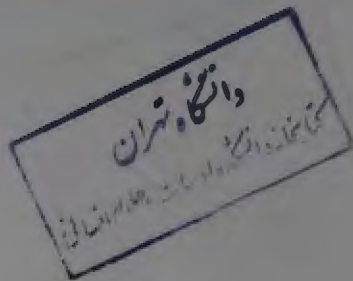 دانشگاه تهران
کتابخانه دانشکده ادبیات و علوم انسانی